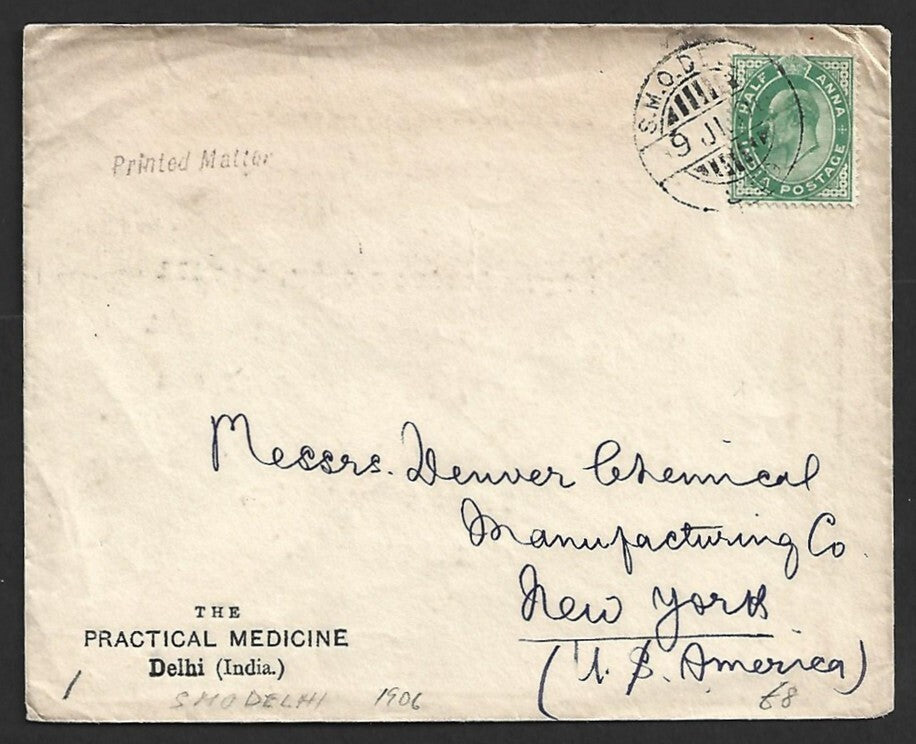 Printed Matter
S.M.O.DE
9 JU
HALF ANNA
POSTAGE
Messrs. Denver Chemical
Manufacturing Co.
New York
(U. S. America)
THE
PRACTICAL MEDICINE
Delhi (India.)
SMO DELHI 1906
£8